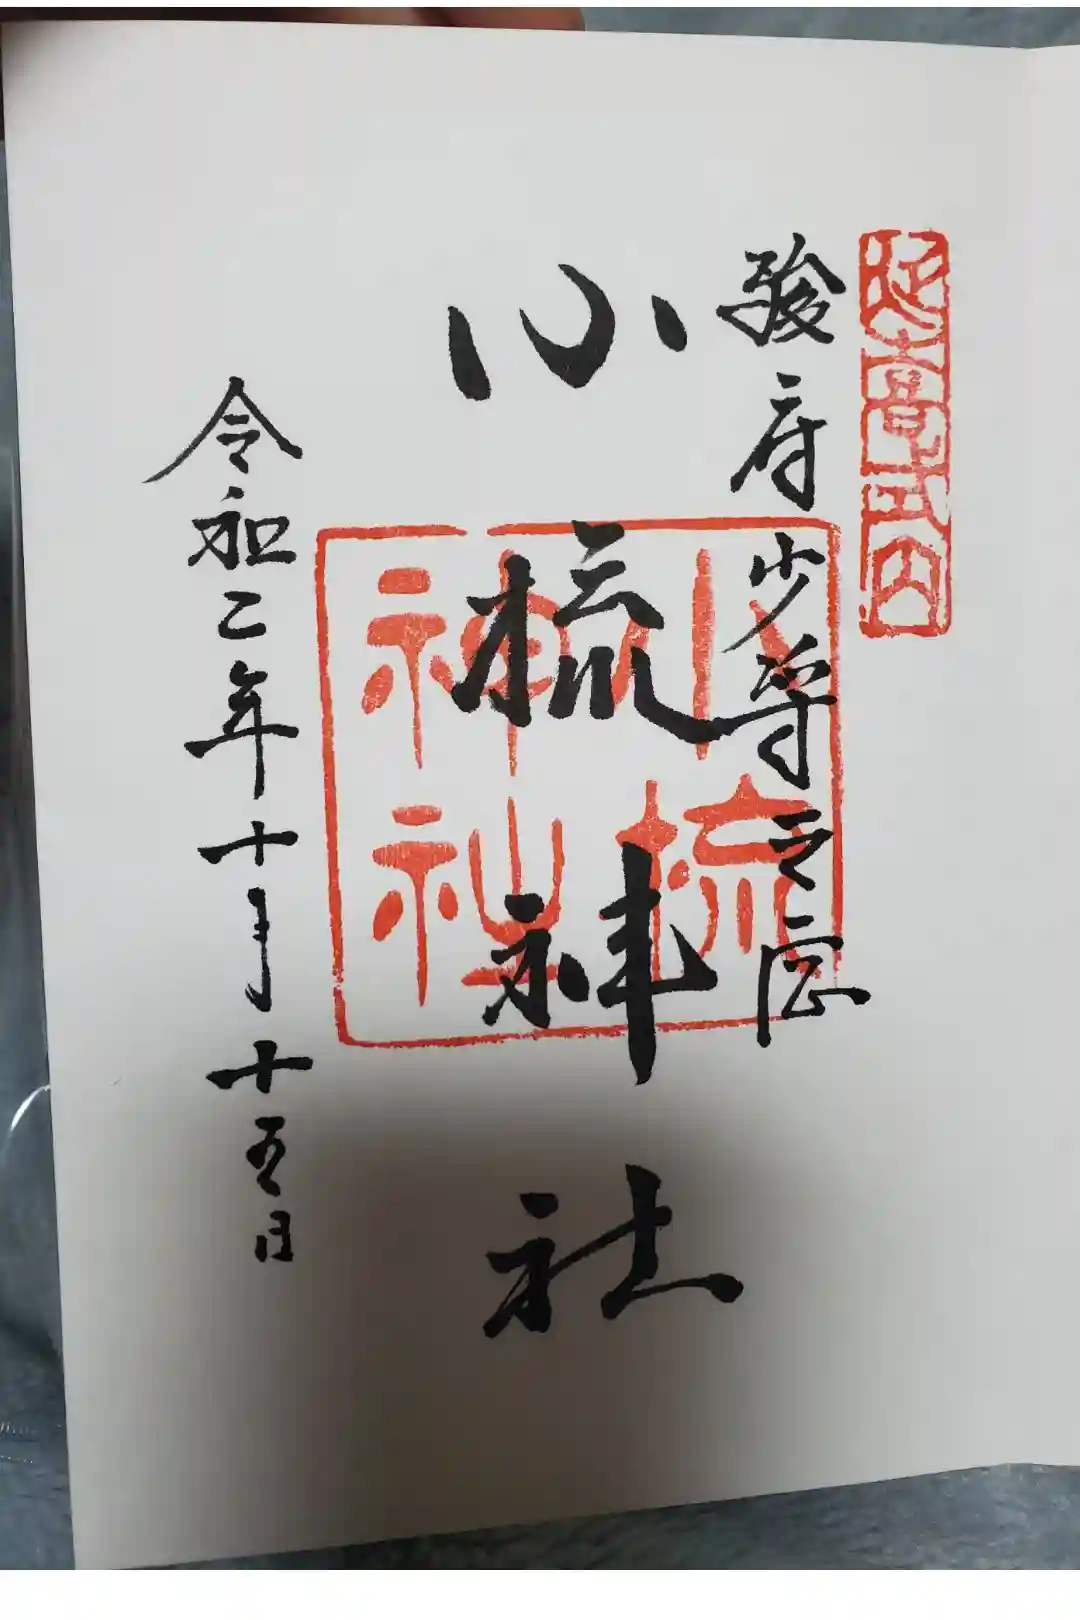 延喜式内
駿府少将之宮
小梳神社
小梳神社
令和二年十月十五日